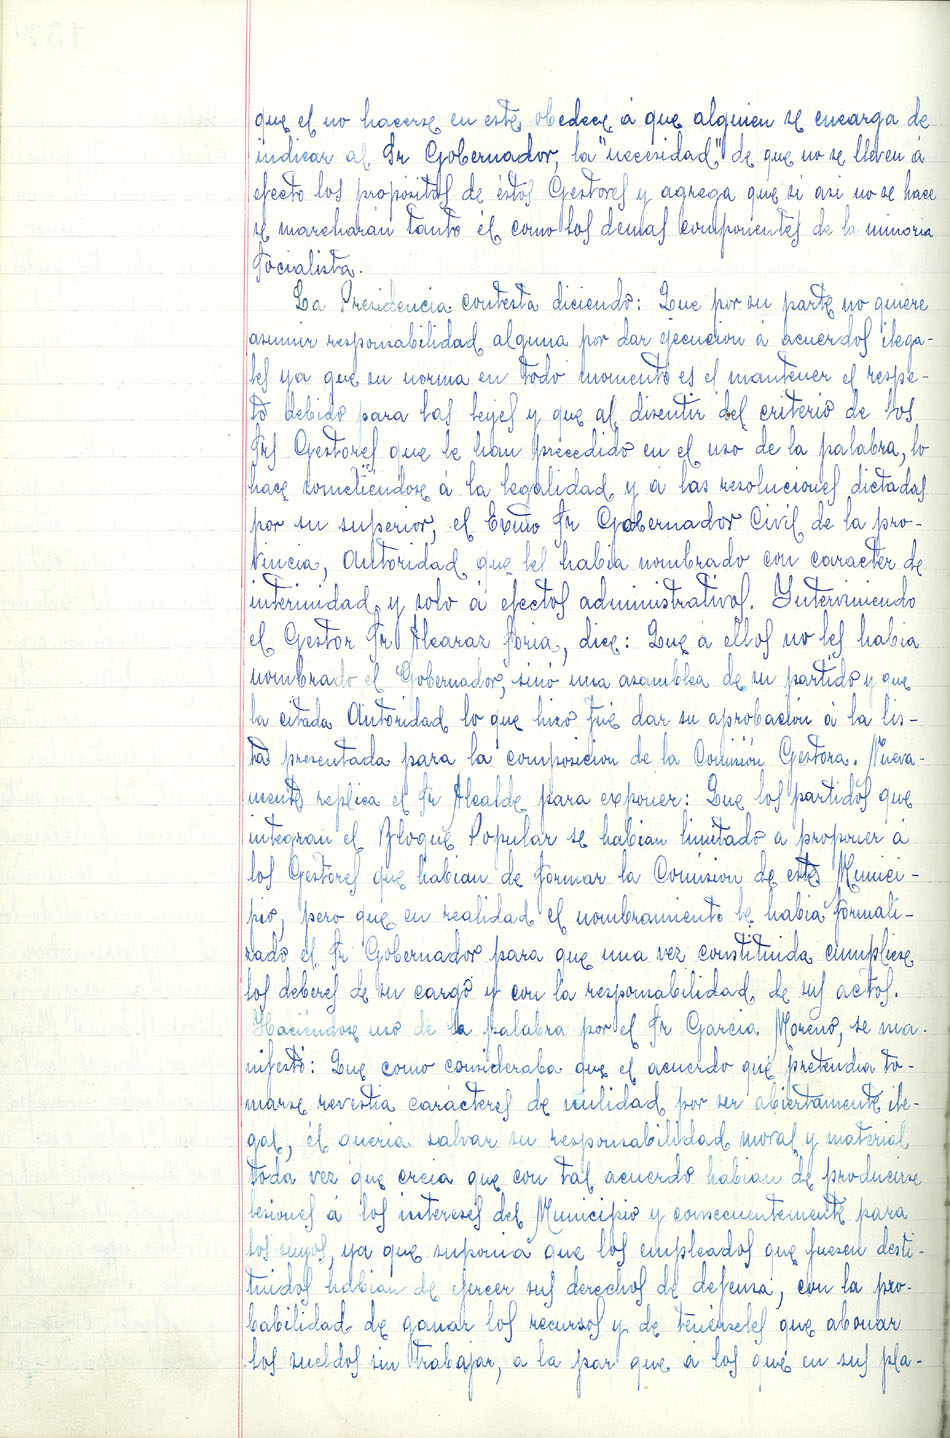 que el no hacerse en este obedece á que alguien se encarga de
indicar al Sr Gobernador, la "necesidad" de que no se lleven á
efecto los propósitos de éstos Gestores y agrega que si asi no se hace
se marcharán tanto él como los demas componentes de la minoria
Socialista.
La Presidencia contesta diciendo: Que por su parte no quiere
asumir responsabilidad alguna por dar ejecucion á acuerdos ilega-
les ya que su norma en todo momento es el mantener el respe-
to debido para las leyes y que al disentir del criterio de los
Srs Gestores que le han precedido en el uso de la palabra, lo
hace sometiéndose á la legalidad y á las resoluciones dictadas
por su superior, el Exmo Sr Gobernador Civil de la pro-
vincia, Autoridad que les habia nombrado con caracter de
interinidad y solo á efectos administrativos. Interviniendo
el Gestor Sr Alcaraz Soria, dice: Que á ellos no les habia
nombrado el Gobernador, sinó una asamblea de su partido y que
la citada Autoridad lo que hizo fué dar su aprobación á la lis-
ta presentada para la composicion de la Comisión Gestora. Nueva-
mente replica el Sr Alcalde para exponer: Que los partidos que
integran el Bloque Popular se habian limitado a proponer á
los Gestores que habian de formar la Comision de este Munici-
pio, pero que en realidad el nombramiento le habia formali-
zado el Sr Gobernador para que una vez constituida cumpliese
los deberes de su cargo y con la responsabilidad de sus actos.
Haciéndose uso de la palabra por el Sr Garcia Moreno, se ma-
nifestó: Que como consideraba que el acuerdo que pretendia to-
marse revestia carácteres de nulidad por ser abiertamente ile-
gal, él queria salvar su responsabilidad moral y material
toda vez que creia que con tal acuerdo habian de producirse
lesiones á los intereses del Municipio y consecuentemente para
los suyos, ya que suponia que los empleados que fuesen desti-
tuidos habian de ejercer sus derechos de defensa, con la pro-
babilidad de ganar los recursos y de tenerseles que abonar
los sueldos sin trabajar, a la par que a los que en sus pla-